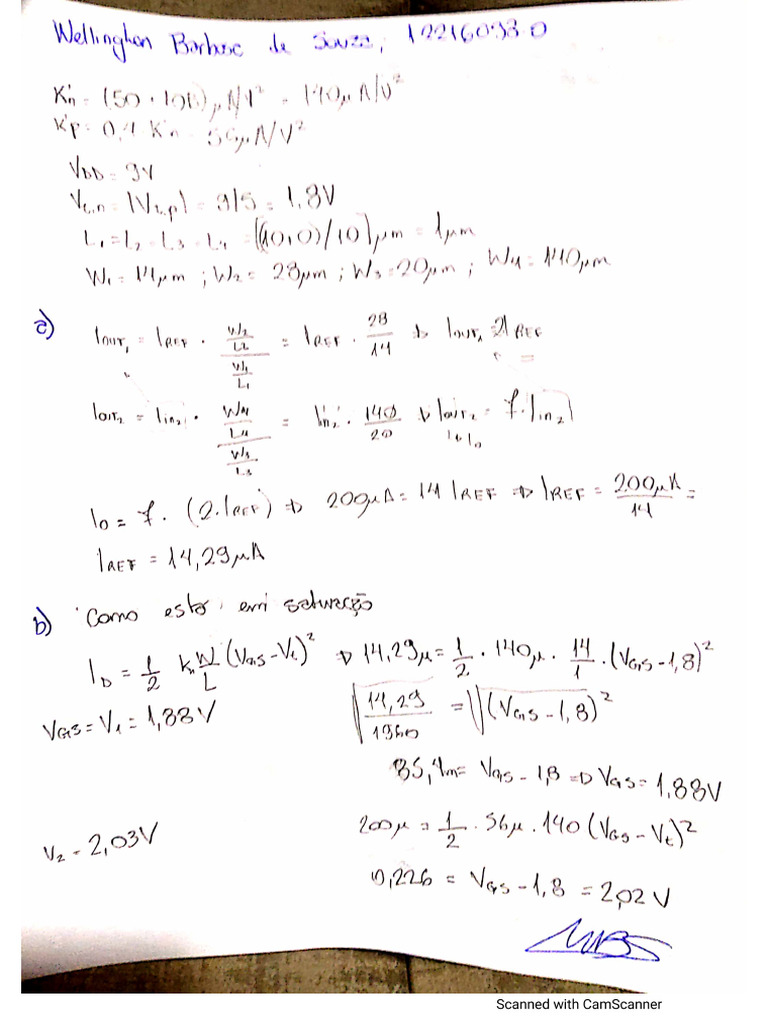 Wellington Barbosa de Souza, 12216093-0
K'n = (50 + 100) μA/V² = 140μA/V²
K'p = 0,4 · K'n = 56μA/V²
VDD = 9V
Vt,n = |Vt,p| = 9/5 = 1,8V
L1 = L2 = L3 = L4 = [(10,0)/10] μm = 1μm
W1 = 14μm ; W2 = 28μm ; W3 = 20μm ; W4 = 140μm
a) IOUT1 = IREF · (W2/L2)/(W1/L1) = IREF · 28/14 ⇒ IOUT1 = 2IREF
IOUT2 = Iin2 · (W4/L4)/(W3/L3) = Iin2 · 140/20 ⇒ IOUT2 = 7·Iin2
IO = 7 · (2·IREF) ⇒ 200μA = 14 IREF ⇒ IREF = 200μA/14 =
IREF = 14,29μA
b) Como esta em saturação
ID = 1/2 K'n W/L (VGS - Vt)² ⇒ 14,29μ = 1/2 · 140μ · 14/1 · (VGS - 1,8)²
VGS = V1 = 1,88V
√(14,29/1960) = √(VGS - 1,8)²
85,4m = VGS - 1,8 ⇒ VGS = 1,88V
200μ = 1/2 · 56μ · 140 (VGS - Vt)²
V2 = 2,03V
0,226 = VGS - 1,8 = 2,02V
WBS
Scanned with CamScanner